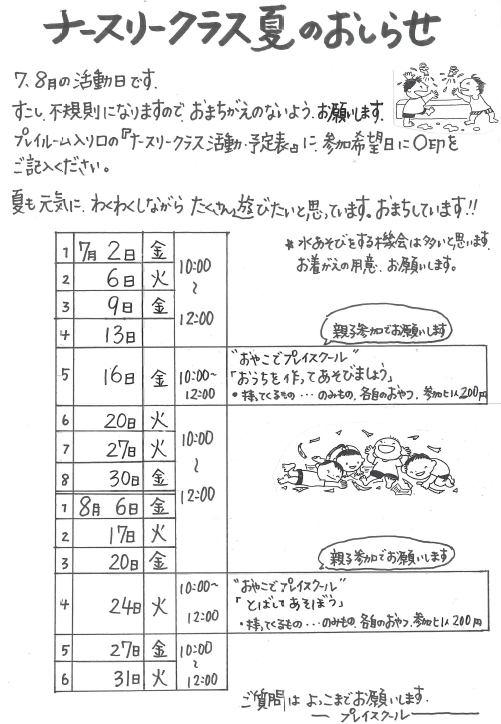 ナースリークラス夏のおしらせ
7、8月の活動日です.
すこし、不規則になりますので、おまちがえのないよう、お願いします.
プレイルーム入り口の『ナースリークラス活動・予定表』に、参加希望日に○印を
ご記入ください。
夏も元気に、わくわくしながら たくさん遊びたいと思っています。おまちしています!!
*水あそびをする機会は多いと思います.
お着がえの用意、お願いします。
1 7月 2日 金 10:00~12:00
2 6日 火
3 9日 金
4 13日
親子参加でお願いします
5 16日 金 10:00~12:00 "おやこでプレイスクール"
「おうちを作ってあそびましょう」
・持ってくるもの…のみもの、各自のおやつ、参加ヒ1人200円
6 20日 火 10:00~12:00
7 27日 火
8 30日 金
1 8月 6日 金
2 17日 火
3 20日 金
親子参加でお願いします
4 24日 火 10:00~12:00 "おやこでプレイスクール"
「とばしてあそぼう」
・持ってくるもの…のみもの、各自のおやつ、参加ヒ1人200円
5 27日 金 10:00~12:00
6 31日 火
ご質問は よっこまでお願いします.
プレイスクール